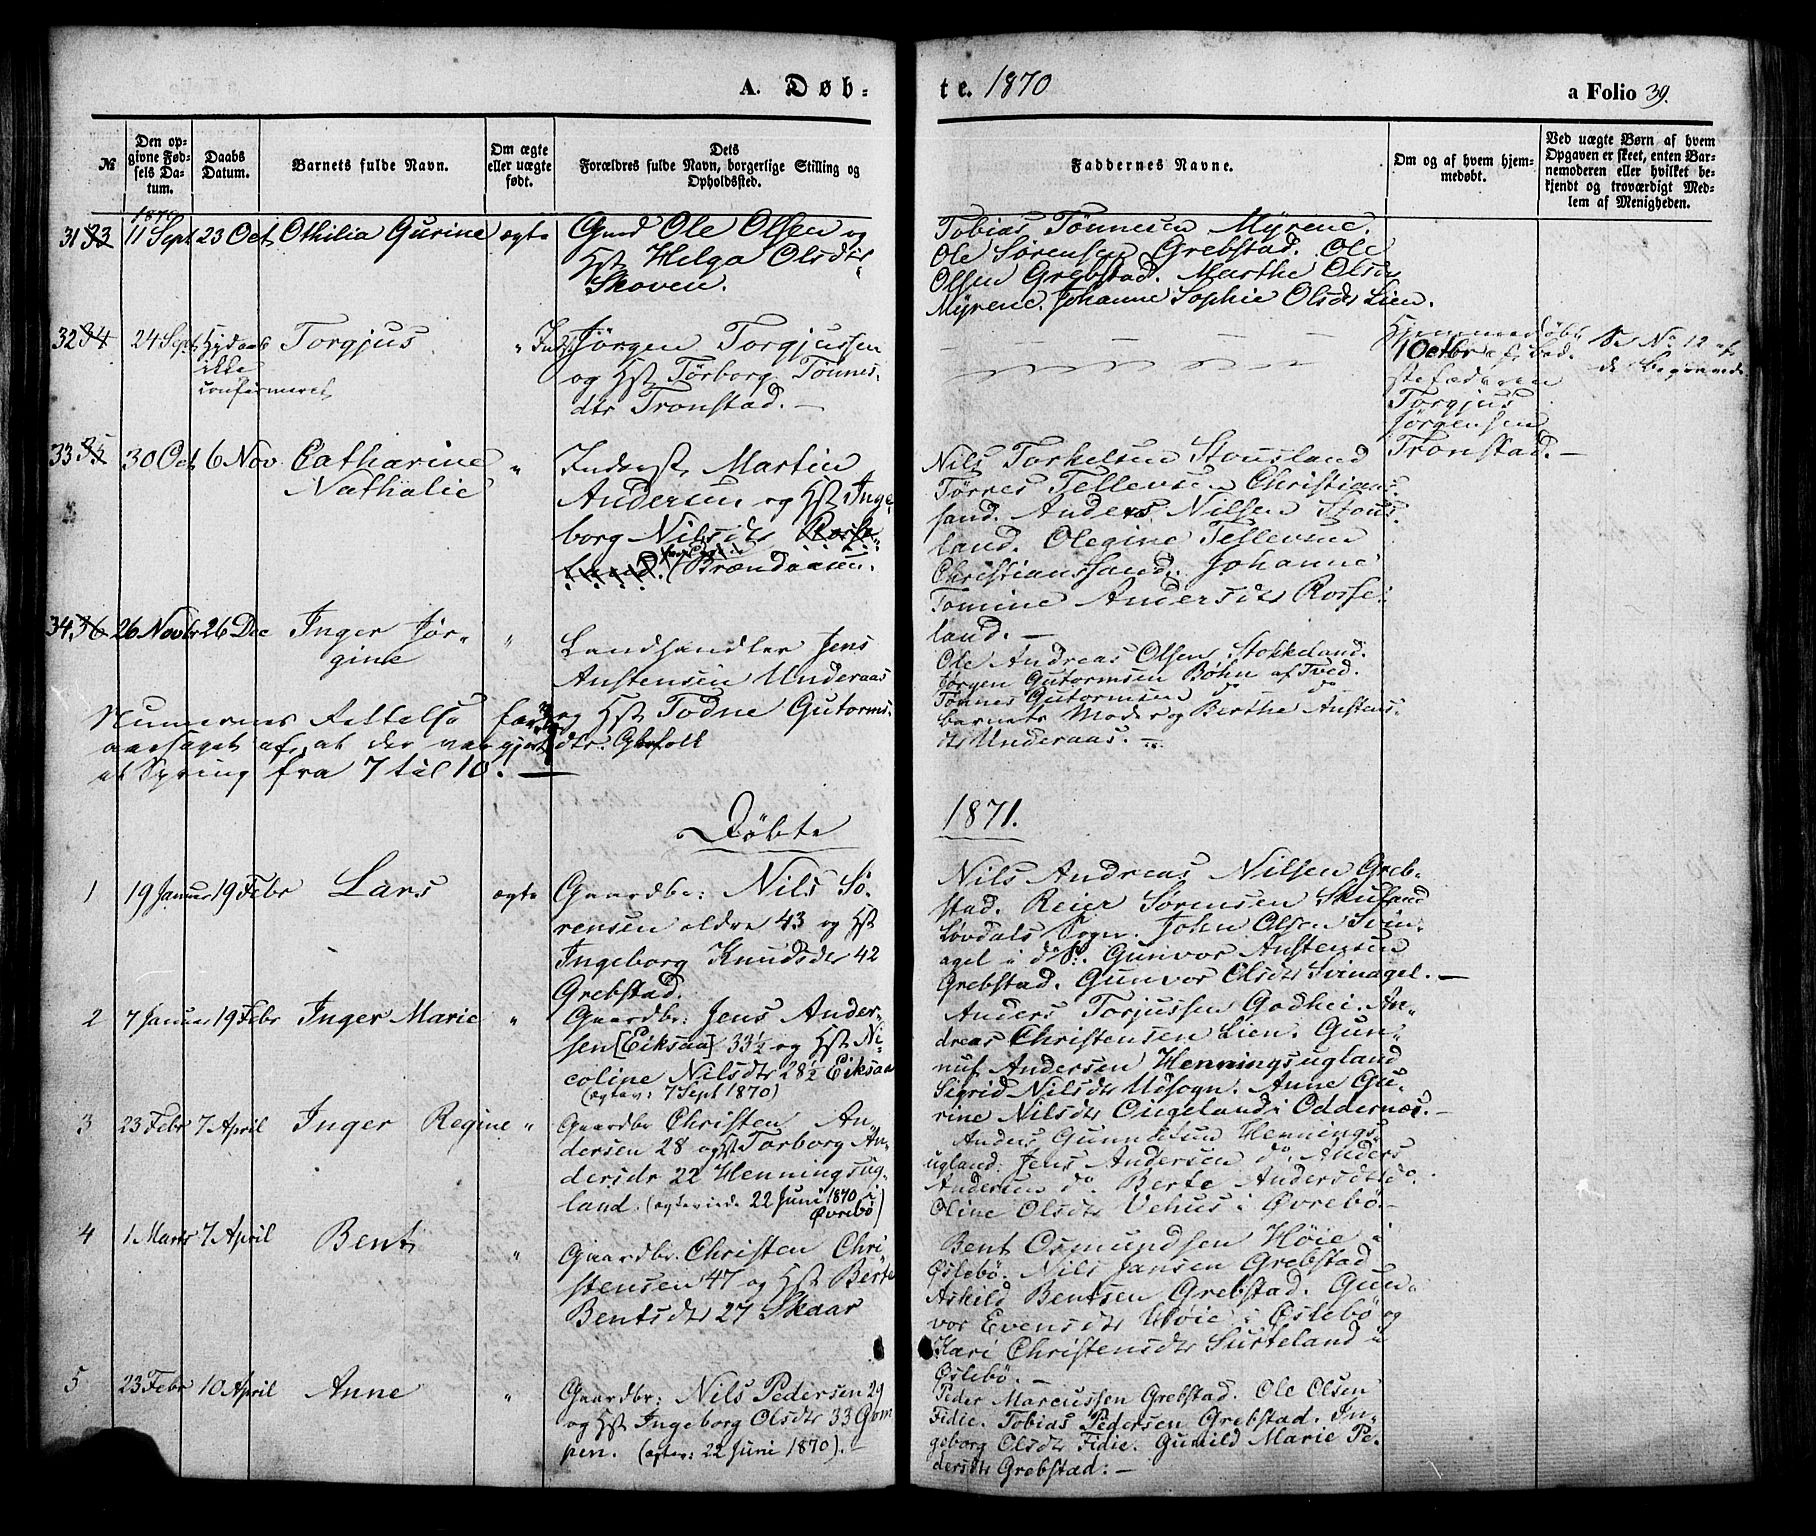 A. Døb-
te. 1870
a Folio 39.
№
Den op-
givne Fød-
sels Da-
tum.
Daabs
Datum.
Barnets fulde Navn.
Om ægte
eller uægte
født.
Dets
Forældres fulde Navn, borgerlige Stilling og
Opholdssted.
Faddernes Navne.
Om og af hvem hjem-
medøbt.
Ved uægte Børn af hvem
Opgaven er skeet, enten Bar-
nemoderen eller hvilket be-
kjendt og troværdigt Med-
lem af Menigheden.
1870
31 33 11 Sept 23 Oct Othilia Gurine ægte
Gmd Ole Olsen og
Hst Helga Olsdtr
Skoven.
Tobias Tønnesen Myrene.
Ole Sørensen Grebstad. Ole
Olsen Grebstad. Marthe Olsdtr
Myrene. Johanne Sophie Olsdtr Lien.
32 34 24 Sept
ikke
confirmeret
Torgjus
" Indst Jørgen Torgjussen
og Hst Torborg Tønnes-
dtr Tronstad. —
Hjemmedøbt
1 Octbr af Bed-
stefaderen
Torgjus
Jørgensen
Tronstad. —
Se No 12 af
de begravede
33 35 30 Oct 6 Nov. Catharine
Nathalie
"
Inderst Martin
Andersen og Hst Inge-
borg Nilsdtr Rosse-
land. (Brændaasen.
Nils Torkelsen Stousland
Tørres Tellevsen Christians-
sand. Anders Nilsen Stous-
land. Olegine Tellevsen
Christianssand. Johanne
Tomine Andersdtr Rosse-
land. —
34. 36 26 Novbr 26 Dec Inger Jør-
gine
"
Landhandler Jens
Anstensen Underaas
og Hst Todne Gutorms-
dtr. Gbrfolk
Ole Andreas Olsen Stokkeland.
Jørgen Gutormsen Bøhn af Tved.
Tønnes Gutormsen do do
Barnets Moder og Berthe Anstens-
dtr Underaas. —
Numernes Rettelse
aarsaget af, at der var gjort
et Spring fra 7 til 10. —
Døbte
1871.
1 19 Januar 19 Febr Lars ægte
Gaardbr: Nils Sø-
rensen ældre 43 og Hst
Ingeborg Knudsdtr 42
Grebstad.
Nils Andreas Nilsen Greb-
stad. Reier Sørensen Skusland
Løvdals Sogn. John Olsen Svin-
agel i d. S. Gunvor Anstensen
Grebstad. Gunvor Olsdtr Svinagel. —
2 7 Januar 19 Febr Inger Marie "
Gaardbr: Jens Ander-
sen [Eiksaa] 33½ og Hst Ni-
coline Nilsdtr 28½ Eiksaa
(ægtev: 7 Sept 1870)
Anders Torjussen Godhei. An-
dreas Christensen Lien. Gun-
nuf Andersen Henningsugland
Sigrid Nilsdtr Udsogn. Anne Gu-
rine Nilsdtr Augeland i Oddernæs. —
3 23 Febr 7 April Inger Regine "
Gaardbr Christen An-
dersen 28 og Hst Torborg An-
dersdr 22 Henningsug-
land. (ægteviede 22 Juni 1870 i
Øvrebø)
Anders Gunnufsen Hennings-
ugland. Jens Andersen do. Anders
Andersen do Berte Andersdtr do.
Oline Olsdtr Vehus i Øvrebø. —
4 1 Marts 7 April Bent "
Gaardbr. Christen Chri-
stensen 47 og Hst Berte
Bentsdtr 27 Skaar
Bent Osmundsen Høie i
Øslebø. Nils Jansen Grebstad
Askild Bentsen Grebstad. Gun-
vor Evensdtr Høie i Øslebø og
Kari Christensdtr Surteland i
Øslebø. —
5 23 Febr 10 April Anne "
Gaardbr: Nils Pedersen 29
og Hst Ingeborg Olsdtr 33 Gom-
pen. (ægtev: 22 Juni 1870). —
Peder Marcussen Grebstad. Ole Olsen
Fidie. Tobias Pedersen Grebstad. In-
geborg Olsdtr Fidie. Gunild Marie Pe-
dersdtr Grebstad: —